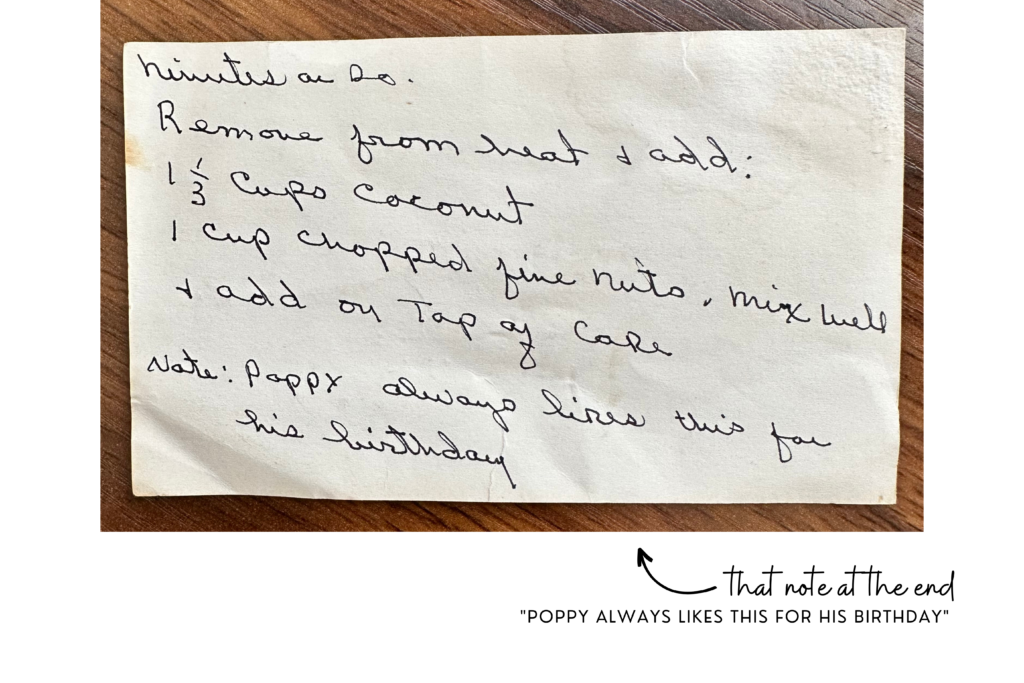 minutes or so.
Remove from heat & add:
1 1/3 cups coconut
1 cup chopped fine nuts, mix well
& add on Top of Cake
Note: Poppy always likes this for
his birthday
that note at the end
"POPPY ALWAYS LIKES THIS FOR HIS BIRTHDAY"